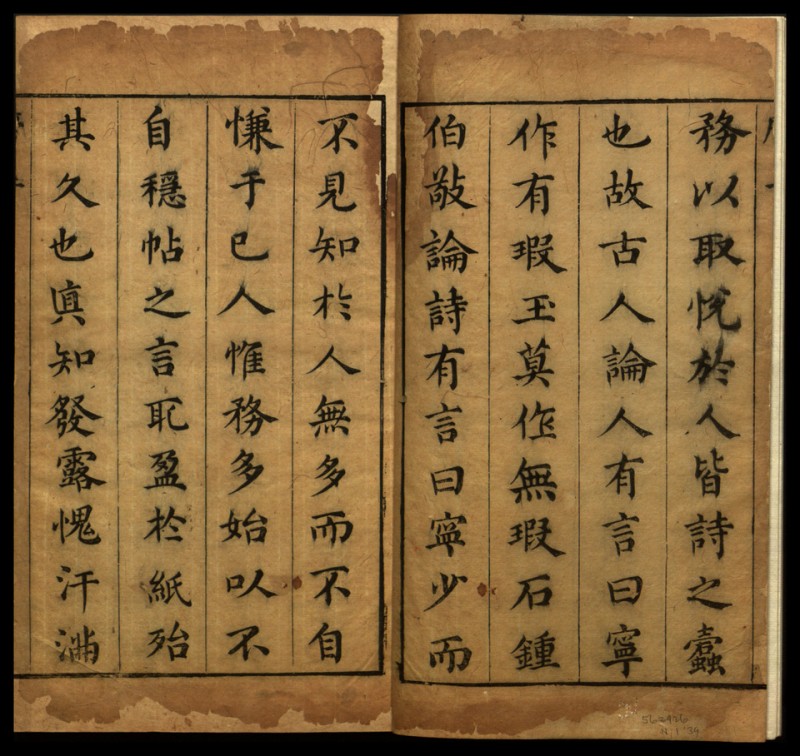 務以取悅於人皆詩之蠹
也故古人論人有言曰寧
作有瑕玉莫作無瑕石鍾
伯敬論詩有言曰寧少而
不見知於人無多而不自
慊于已人惟務多始以不
自穩帖之言耴盈於紙殆
其久也眞知發露愧汗滿
56-2436